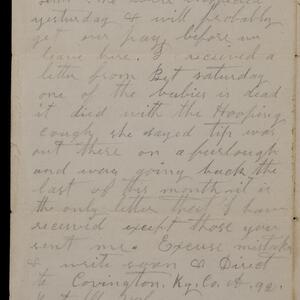 yesturday & will probably
get our pay before we
leave here. I recieved a
letter from Bet saturday
one of the babies is dead
it died with the Hooping
cough, she sayed tip was
out there on a furlough
and was going back the
last of this month. it is
the only letter that I have
received except those you
sent me. Excuse mistakes
& write soon & Direct
to Covington. Ky. Co. H. 92.